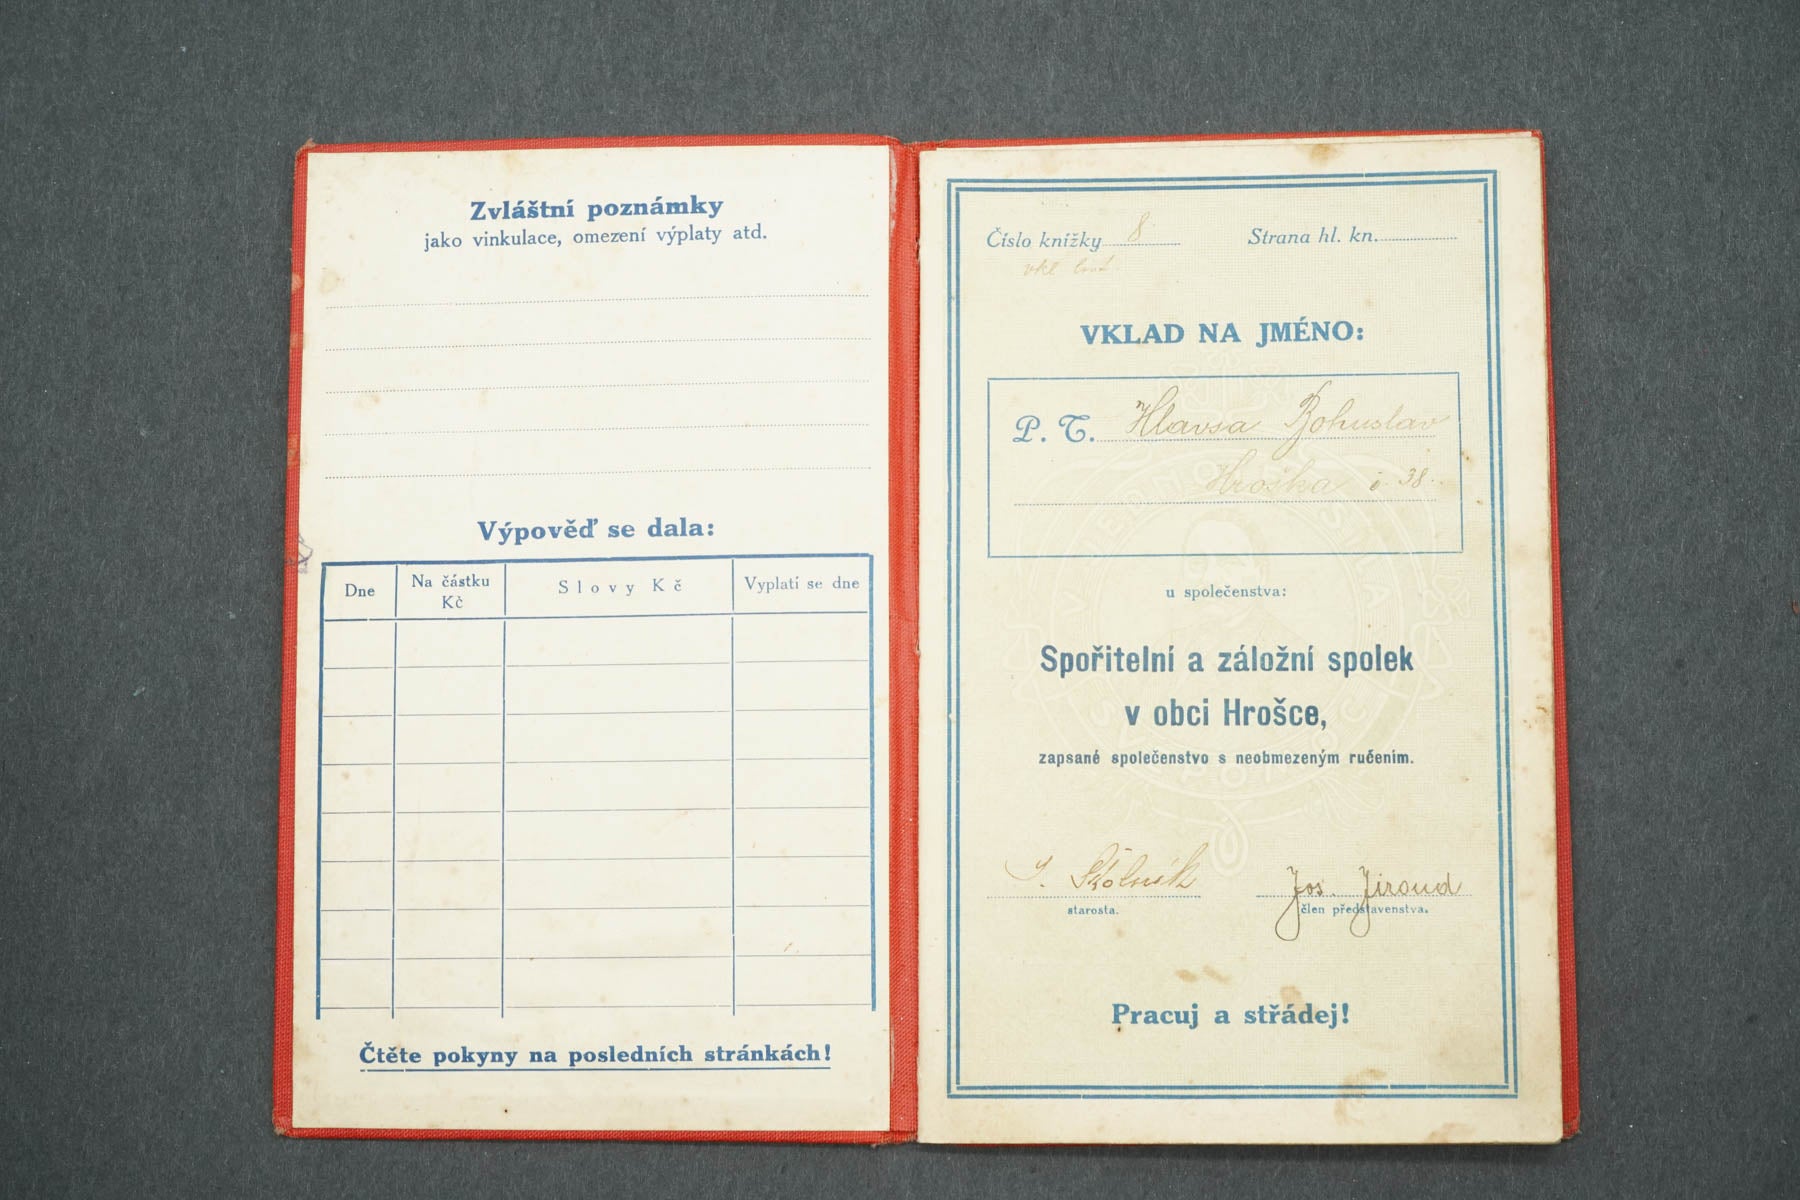 Zvláštní poznámky
jako vinkulace, omezení výplaty atd.
Výpověď se dala:
Dne
Na částku Kč
Slovy Kč
Vyplatí se dne
Čtěte pokyny na posledních stránkách!
Číslo knížky 8 Strana hl. kn.
vkl
VKLAD NA JMÉNO:
P. T. Hlavsa Bohuslav
Hroška č 38.
u společenstva:
Spořitelní a záložní spolek
v obci Hrošce,
zapsané společenstvo s neobmezeným ručením.
Jos. Jiroud
starosta. člen představenstva.
Pracuj a střádej!
V JEDNOTĚ SÍLA